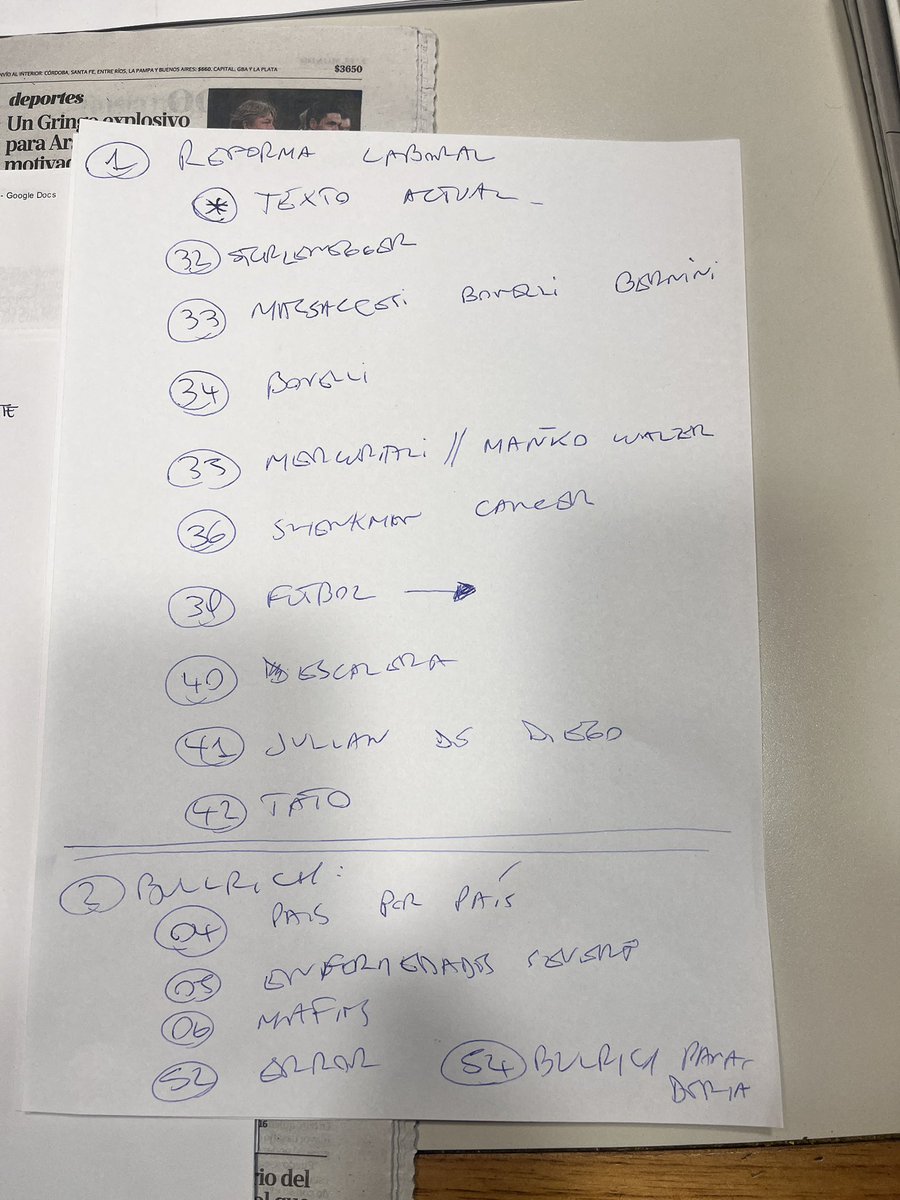 ENVÍO AL INTERIOR: CÓRDOBA, SANTA FE, ENTRE RÍOS, LA PAMPA Y BUENOS AIRES: $660. CAPITAL, GBA Y LA PLATA $3650
deportes
Un Gringo explosivo
para Ar
motivad
- Google Docs
TE
1 REFORMA LABORAL
* TEXTO ACTUAL
32 STURZENEGGER
33 BONELLI BERNINI
34 BONELLI
35 MERCURIALI // MAÑKO WALZER
36 SZTENKMAN CANCER
39 FÚTBOL →
40 ESCALERA
41 JULIAN DE DIEGO
42 TATO
2 BULLRICH:
04 PAIS POR PAÍS
05 ENFERMEDADES SEVERA
06 MAFIAS
52 ERROR 54 BULRICH PARA,
16
rio del